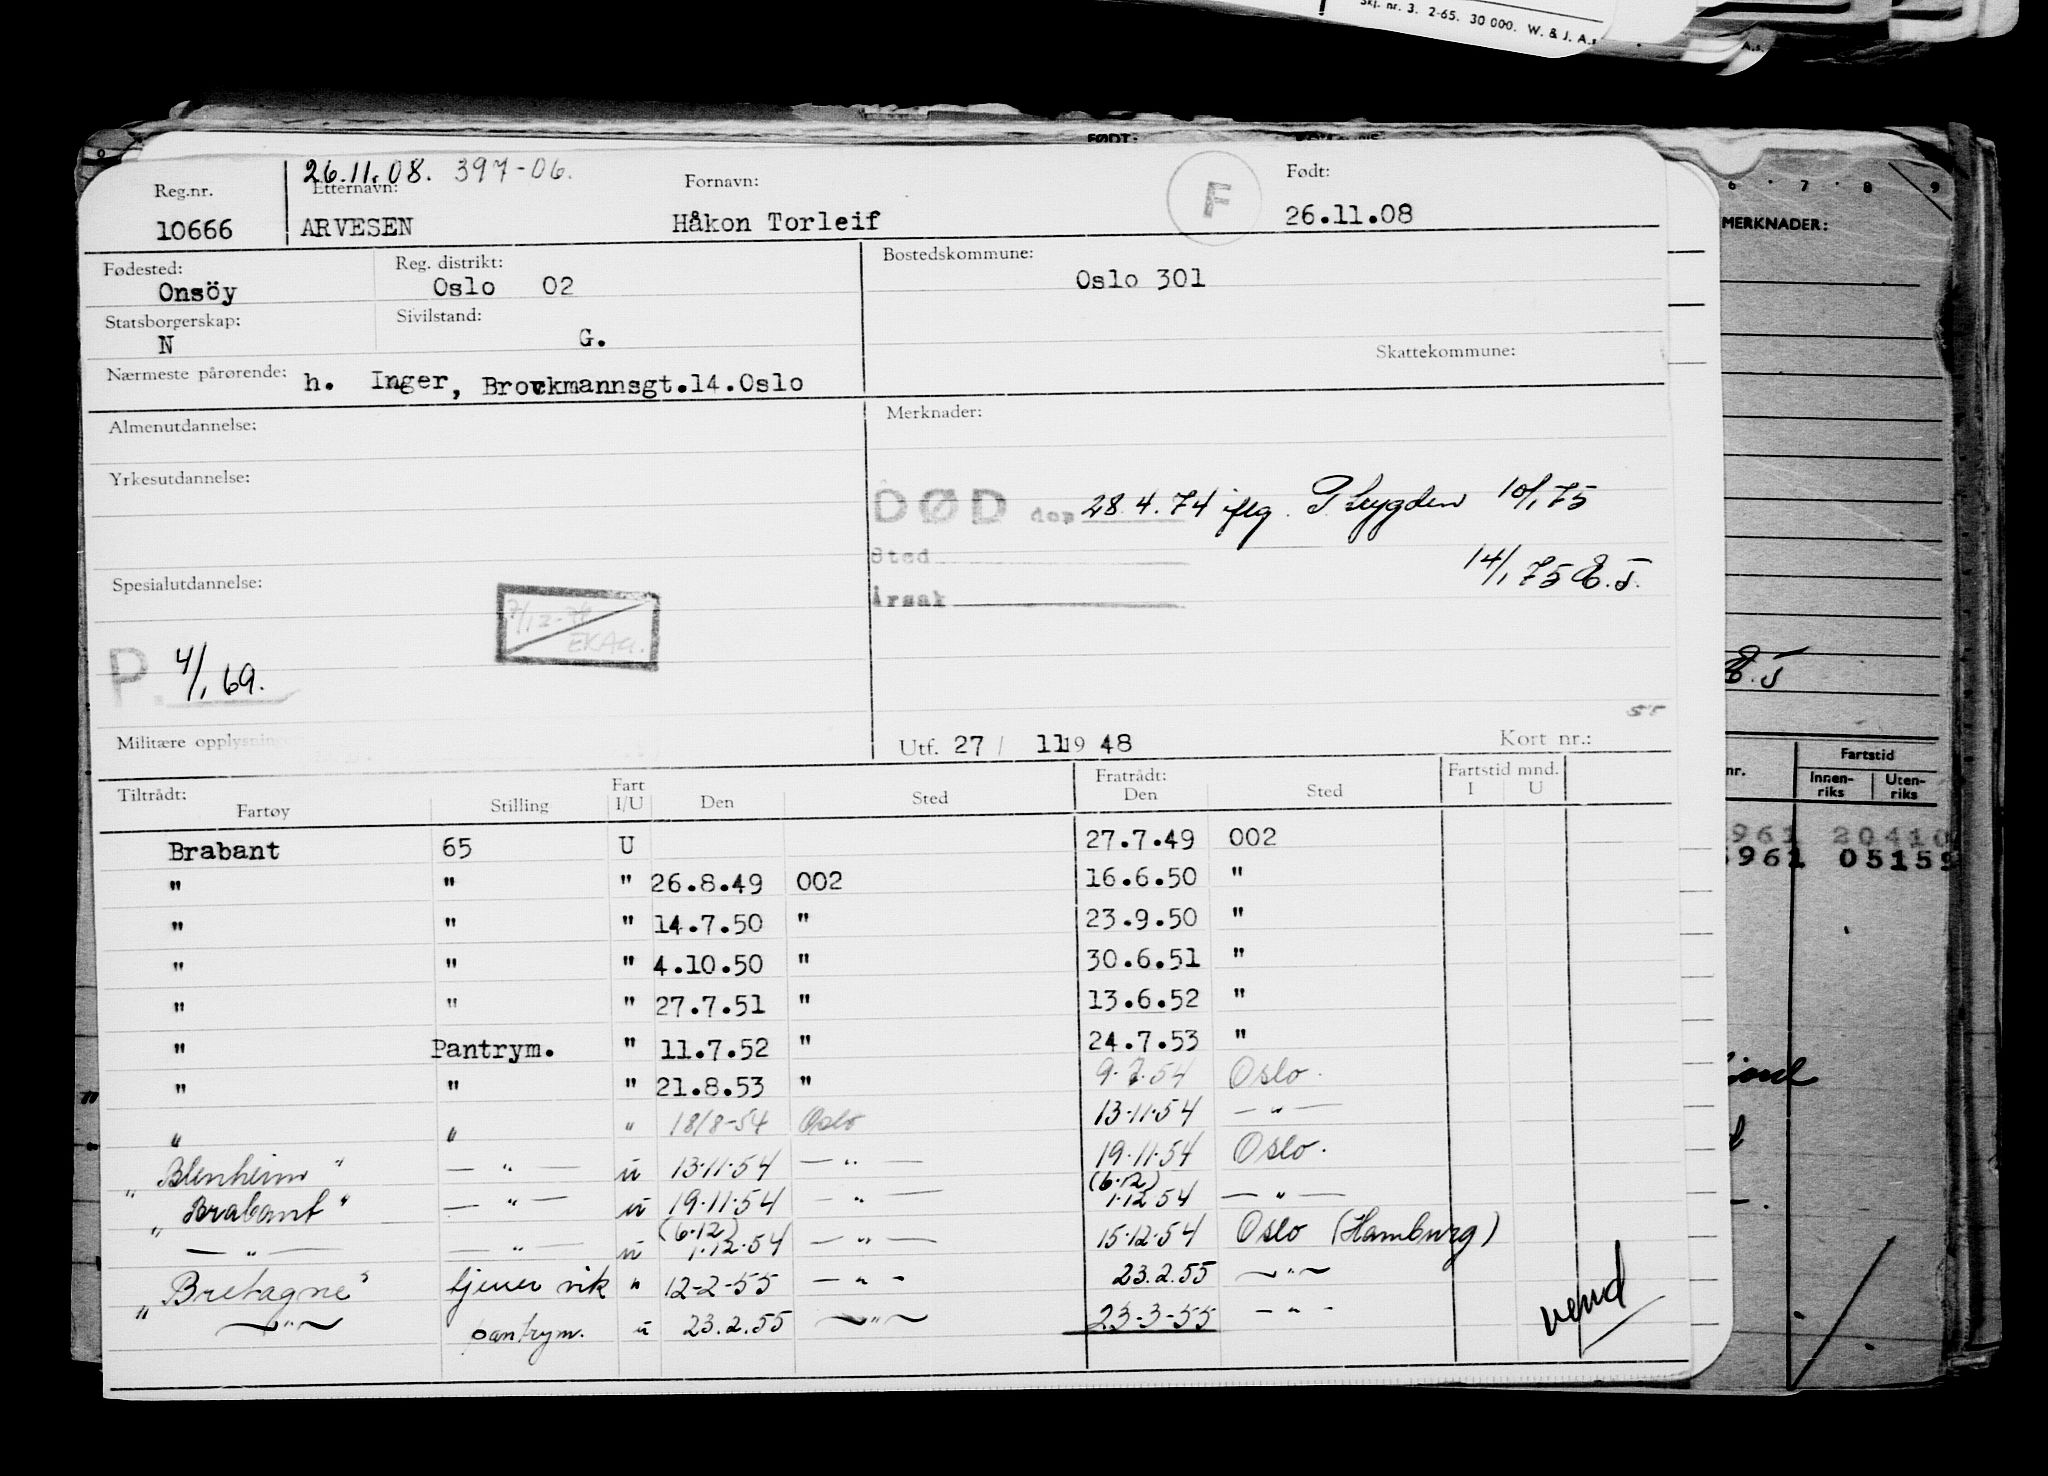 Skj. nr. 3. 2-65. 30 000. W. & J. A.s
A.s.
FØDT:
26.11.08. 397-06.
Reg.nr. Etternavn: Fornavn: F Født:
10666 ARVESEN Håkon Torleif 26.11.08
6 7 8 9
MERKNADER:
Fødested: Reg. distrikt: Bostedskommune:
Onsöy Oslo 02 Oslo 301
Statsborgerskap: Sivilstand:
N G.
Skattekommune:
Nærmeste pårørende: h. Inger, Brockmannsgt.14.Oslo
Almenutdannelse: Merknader:
Yrkesutdannelse:
DØD den 28.4.74 iflg. P. trygden 10/1 75
Sted
14/1 75 E.J.
Spesialutdannelse:
Årsak
P. 4/1 69.
E.J
Militære opplysninger Utf. 27 / 11 19 48 Kort nr.:
nr. Fartstid
Innenriks Utenriks
Tiltrådt: Fart Fratrådt: Fartstid mnd.
Fartøy Stilling I/U Den Sted Den Sted I U
961 20410
961 05159
Brabant 65 U 27.7.49 002
" " " 26.8.49 002 16.6.50 "
" " " 14.7.50 " 23.9.50 "
" " " 4.10.50 " 30.6.51 "
" " " 27.7.51 " 13.6.52 "
" Pantrym. " 11.7.52 " 24.7.53 "
" " " 21.8.53 " 9.7.54 Oslo.
" " " 18/8-54 Oslo 13.11.54 — " —
"Blenheim" — " — u 13.11.54 — " — 19.11.54 Oslo.
"Brabant" — " — u 19.11.54 — " — (6.12) 1.12 54 — " —
— " — — " — u (6.12) 1.12.54 — " — 15.12.54 Oslo (Hamburg)
"Bretagne" tjener vik " 12-2-55 — " — 23.2.55 — " —
— " — pantrym. u 23.2.55 — " — 23-3-55 — " —
vend